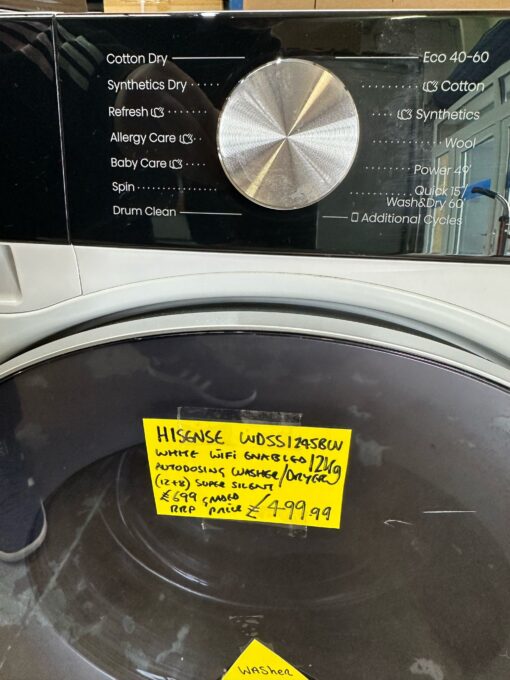 Cotton Dry
Synthetics Dry
Refresh
Allergy Care
Baby Care
Spin
Drum Clean
Eco 40-60
Cotton
Synthetics
Wool
Power 49'
Quick 15'/
Wash&Dry 60'
Additional Cycles
HISENSE WD5S1245BW
WHITE WIFI ENABLED 12Kg
AUTODOSING WASHER/DRYER
(12+8) SUPER SILENT
£699 GRADED
RRP PRICE £499.99
WASHER